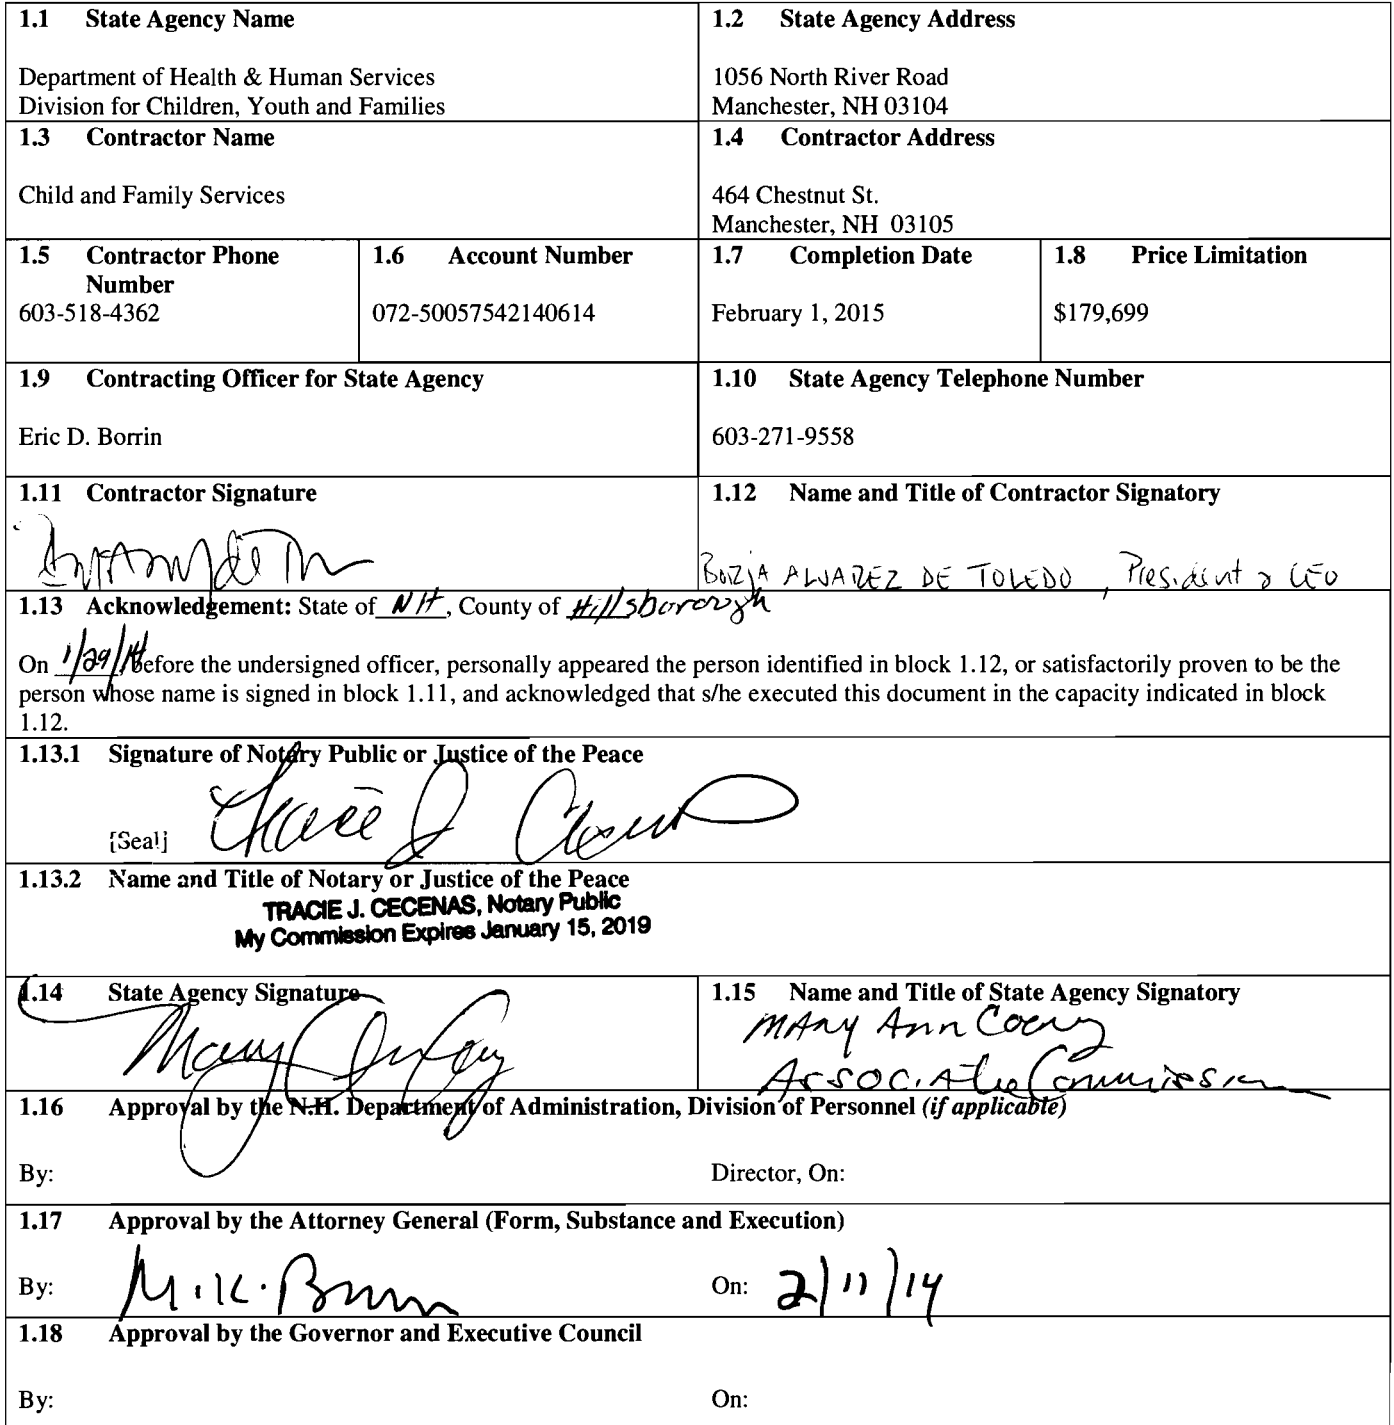 1.1 State Agency Name
Department of Health & Human Services
Division for Children, Youth and Families
1.2 State Agency Address
1056 North River Road
Manchester, NH 03104
1.3 Contractor Name
Child and Family Services
1.4 Contractor Address
464 Chestnut St.
Manchester, NH 03105
1.5 Contractor Phone
Number
603-518-4362
1.6 Account Number
072-50057542140614
1.7 Completion Date
February 1, 2015
1.8 Price Limitation
$179,699
1.9 Contracting Officer for State Agency
Eric D. Borrin
1.10 State Agency Telephone Number
603-271-9558
1.11 Contractor Signature
1.12 Name and Title of Contractor Signatory
BORJA ALVAREZ DE TOLEDO, President & CEO
1.13 Acknowledgement: State of NH, County of Hillsborough
On 1/29/14, before the undersigned officer, personally appeared the person identified in block 1.12, or satisfactorily proven to be the
person whose name is signed in block 1.11, and acknowledged that s/he executed this document in the capacity indicated in block
1.12.
1.13.1 Signature of Notary Public or Justice of the Peace
Tracie J Cecenas
[Seal]
1.13.2 Name and Title of Notary or Justice of the Peace
TRACIE J. CECENAS, Notary Public
My Commission Expires January 15, 2019
1.14 State Agency Signature
1.15 Name and Title of State Agency Signatory
Mary Ann Cooney
Associate Commission
1.16 Approval by the N.H. Department of Administration, Division of Personnel (if applicable)
By:
Director, On:
1.17 Approval by the Attorney General (Form, Substance and Execution)
By: M.K. Brown
On: 2/11/14
1.18 Approval by the Governor and Executive Council
By:
On: